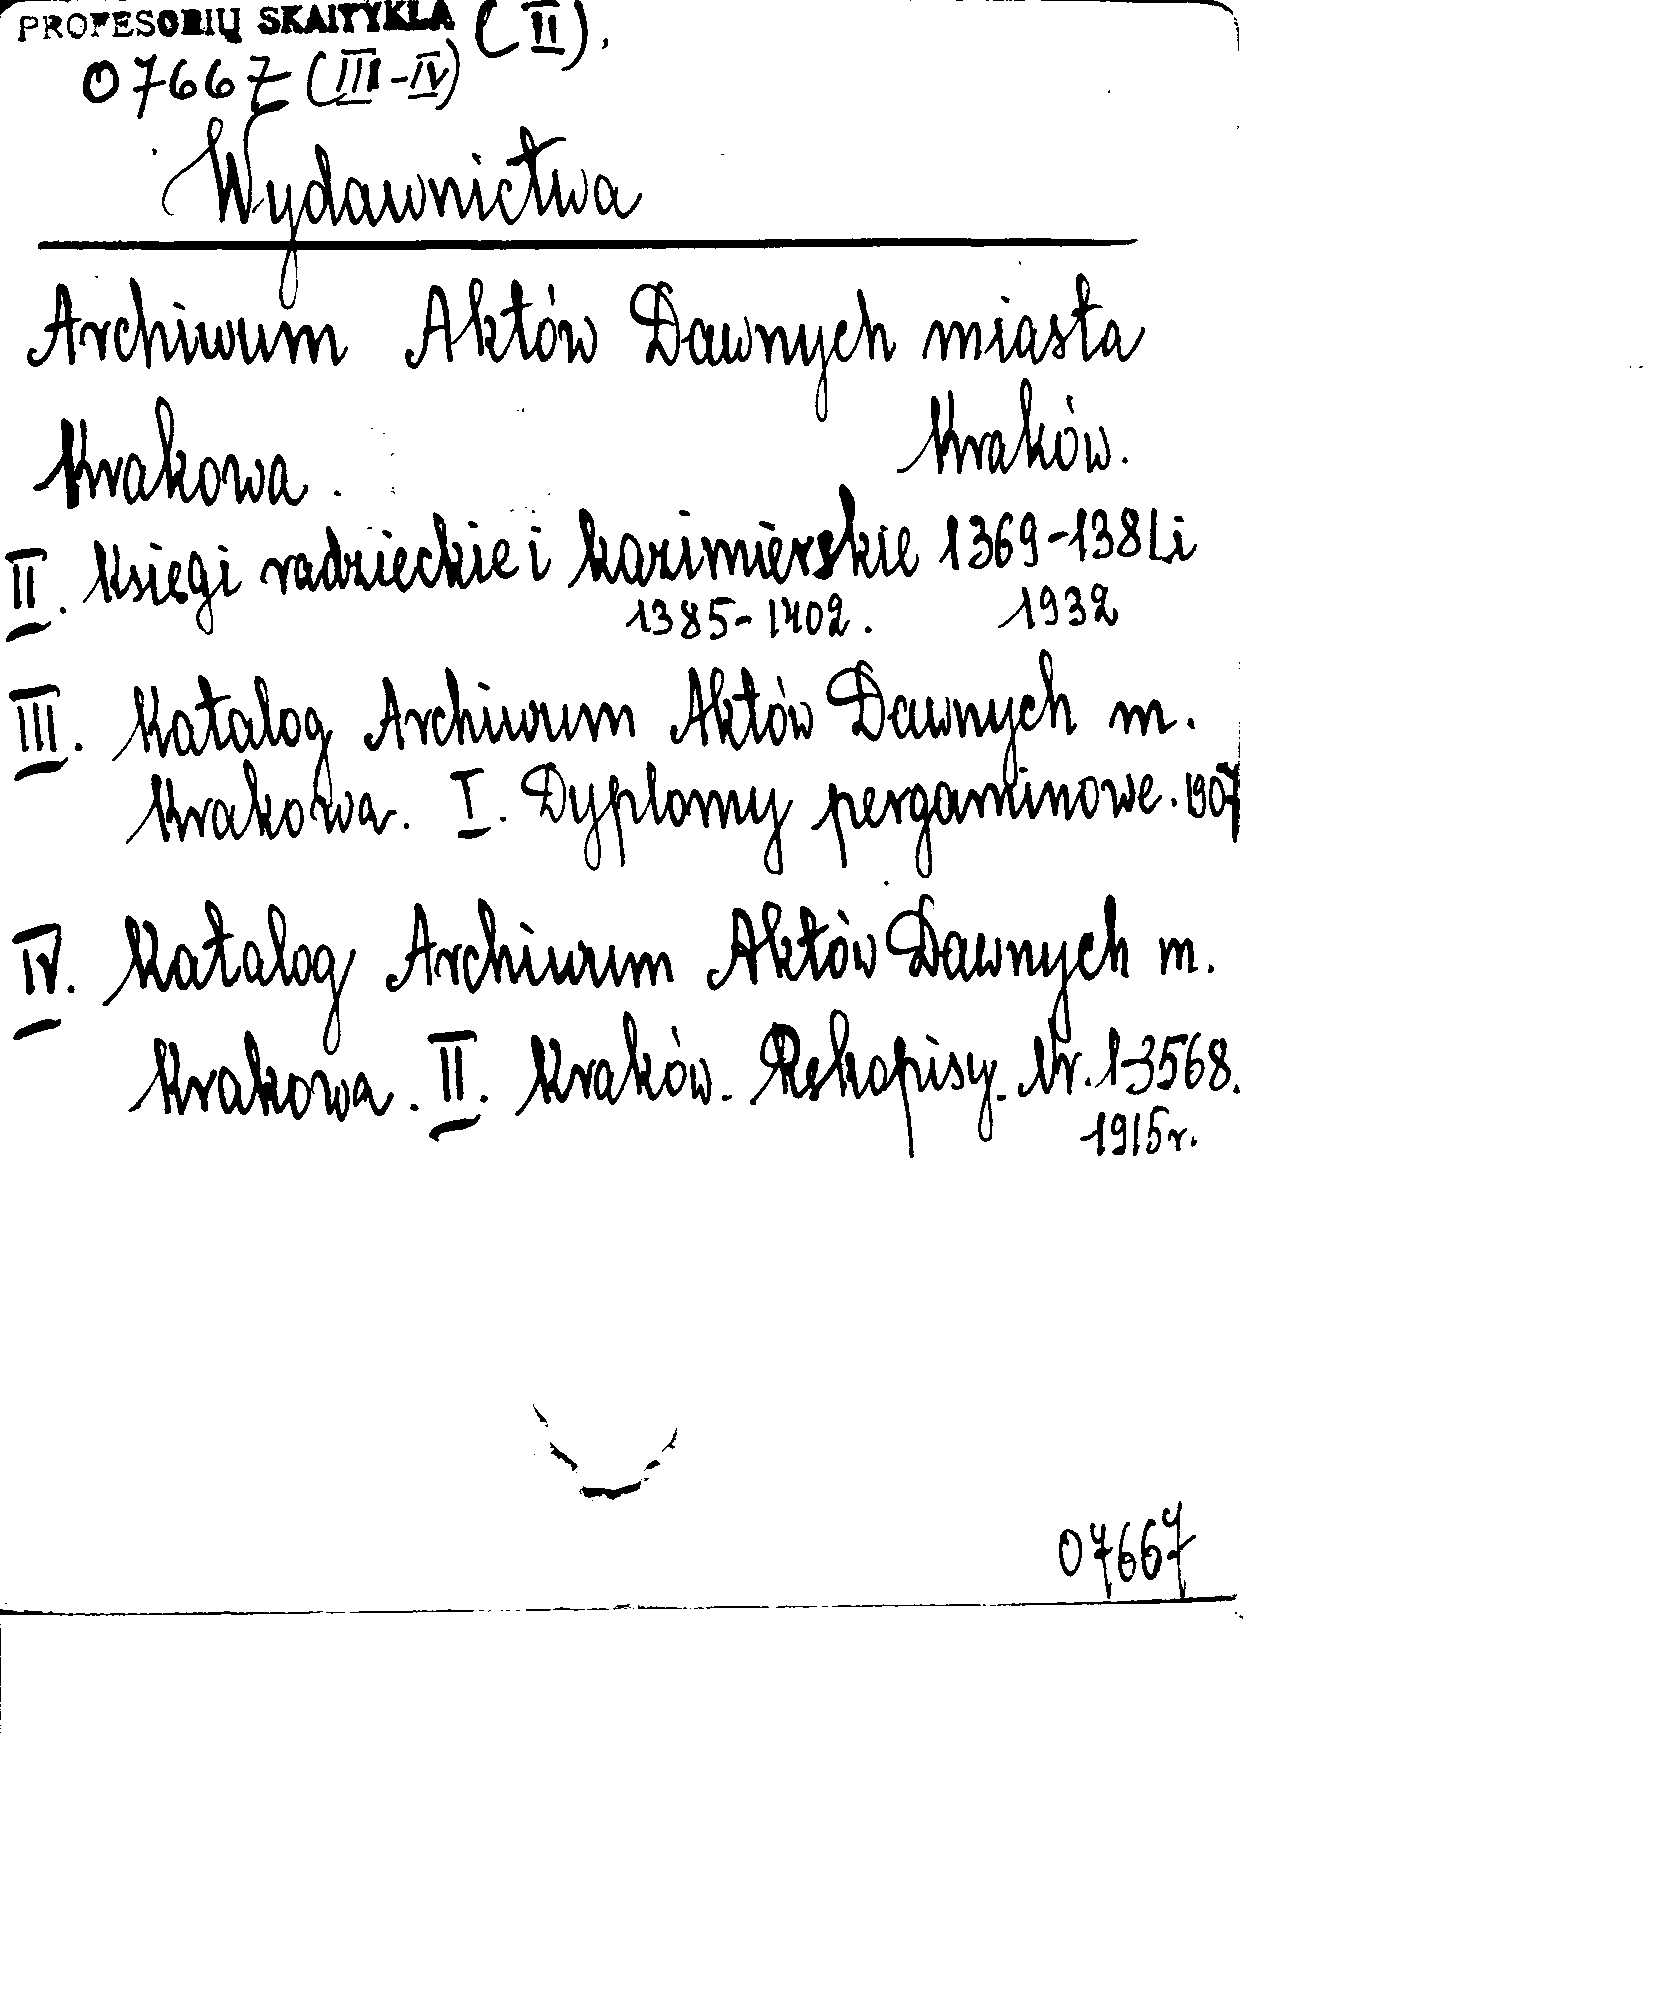 PROFESORIŲ SKAITYKLA (II).
07667 (III-IV)
Wydawnictwa
Archiwum Aktów Dawnych miasta
Krakowa. Kraków.
II. Księgi radzieckie i kazimierskie 1369-1381 i
1385-1402. 1932
III. Katalog Archiwum Aktów Dawnych m.
Krakowa. I. Dyplomy pergaminowe. 1907
IV. Katalog Archiwum Aktów Dawnych m.
Krakowa. II. Kraków. Rękopisy. Nr. 1-3568.
1915 r.
07667